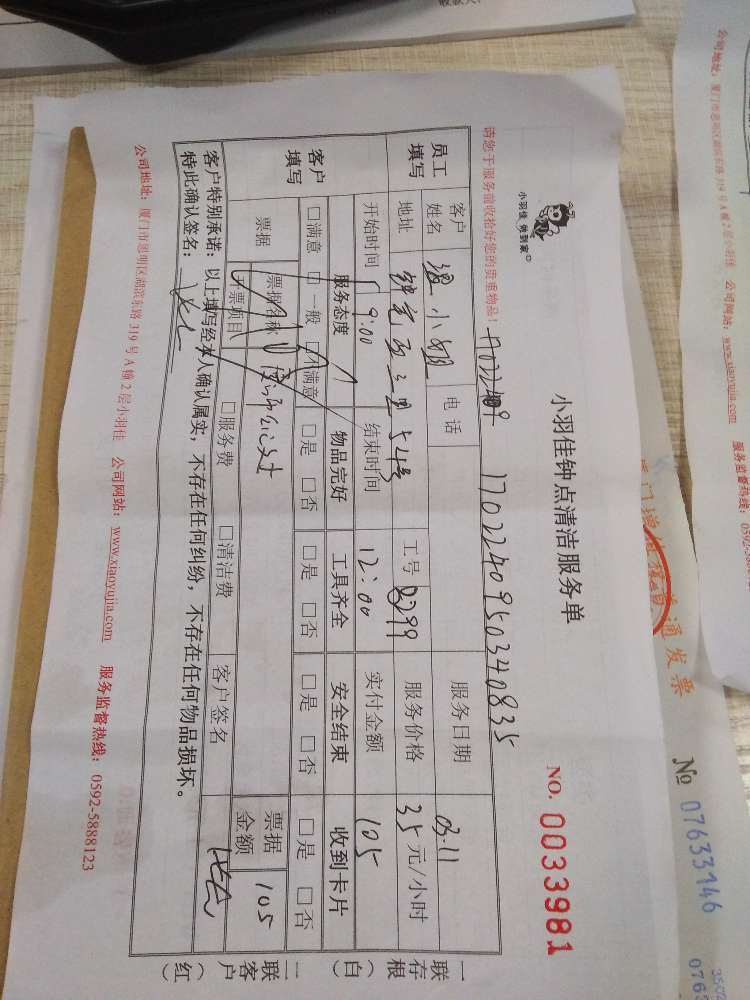 收款人:
小羽佳 做到家
小羽佳钟点清洁服务单
NO. 0033981
1702240950340835
请您于服务前收拾好您的贵重物品!
员工填写
客户姓名 电话 服务日期 03.11
地址 54号 工号 服务价格 35元/小时
开始时间 9:00 结束时间 12:00 实付金额 105
客户填写
服务态度 物品完好 工具齐全 安全结束 收到卡片
□满意 □一般 □不满意 □是 □否 □是 □否 □是 □否 □是 □否
票据 票据名称 票据金额 105
开票项目 □服务费 □清洁费 客户签名
客户特别承诺:以上填写经本人确认属实,不存在任何纠纷,不存在任何物品损坏。
特此确认签名:
公司地址:厦门市思明区湖滨东路319号A幢2层小羽佳 公司网站:www.xiaoyujia.com 服务监督热线:0592-5888123
一联存根(白)
二联客户(红)
公司地址:厦门市思明区湖滨东路319号A幢2层小羽佳 公司网站:www.xiaoyujia.com 服务监督热线:0592-
通发票
№ 07633146
3502
0763